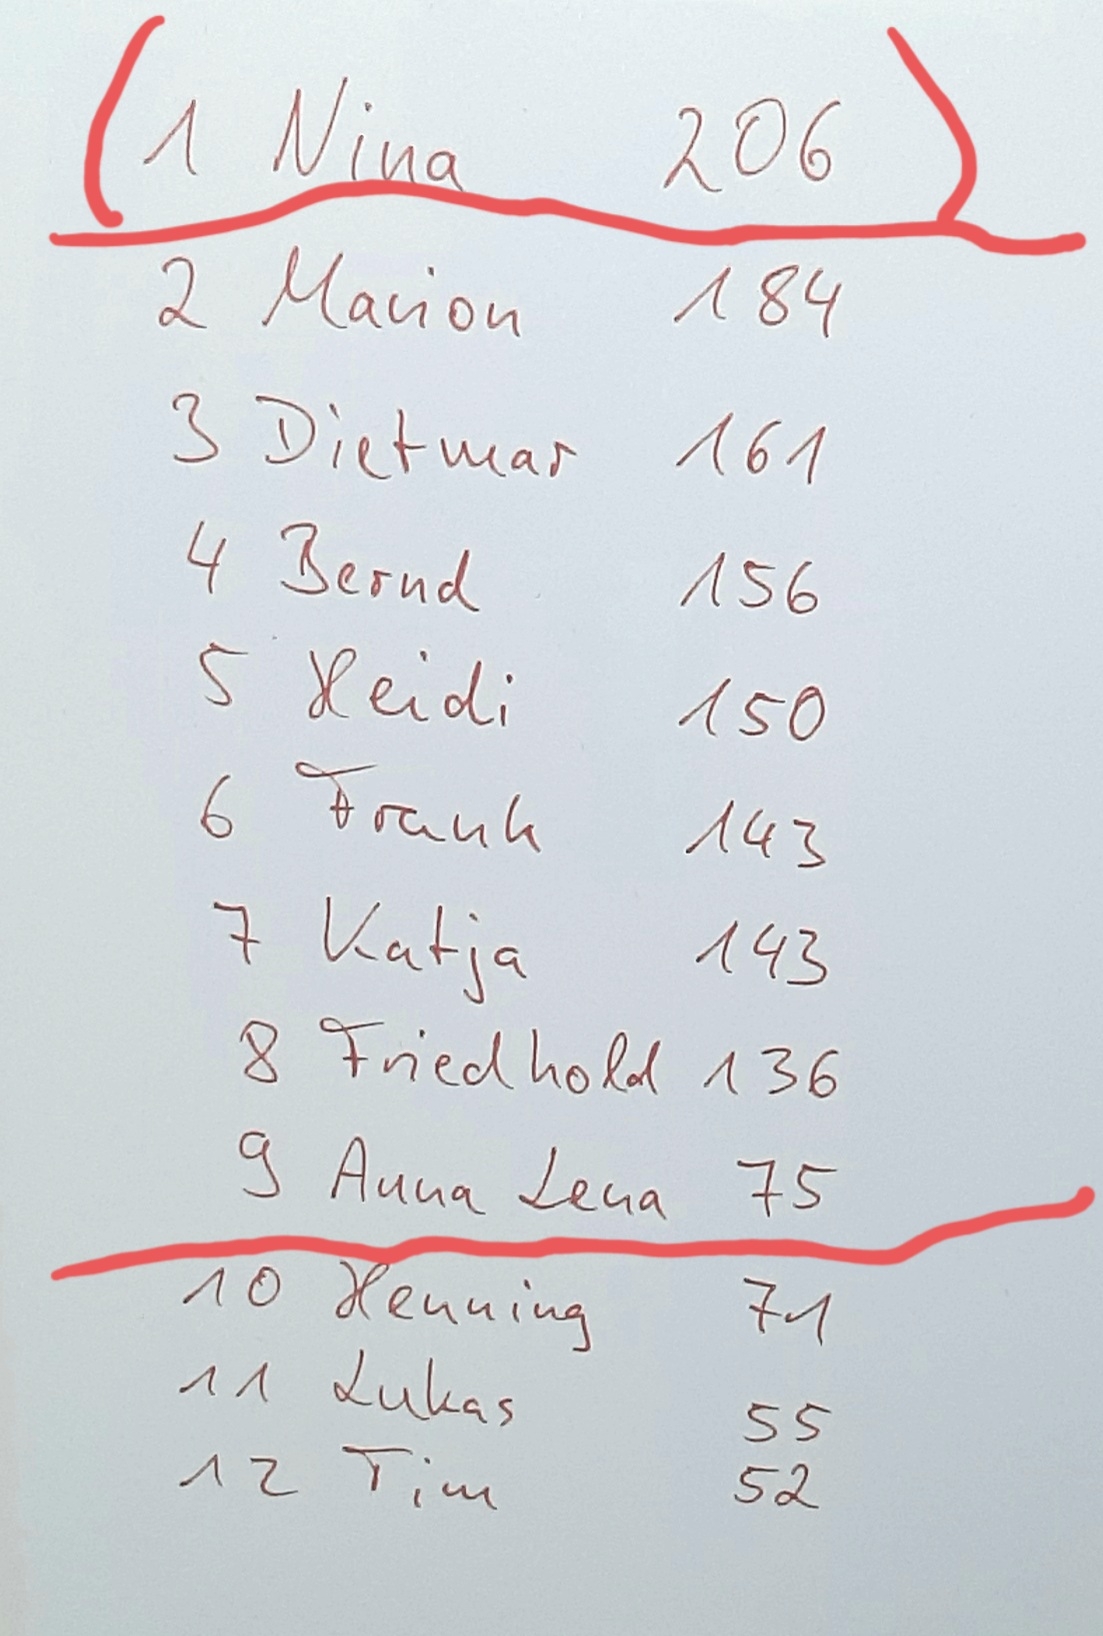 1 Nina 206
2 Marion 184
3 Dietmar 161
4 Bernd 156
5 Heidi 150
6 Frank 143
7 Katja 143
8 Friedhold 136
9 Anna Lena 75
10 Henning 71
11 Lukas 55
12 Tim 52